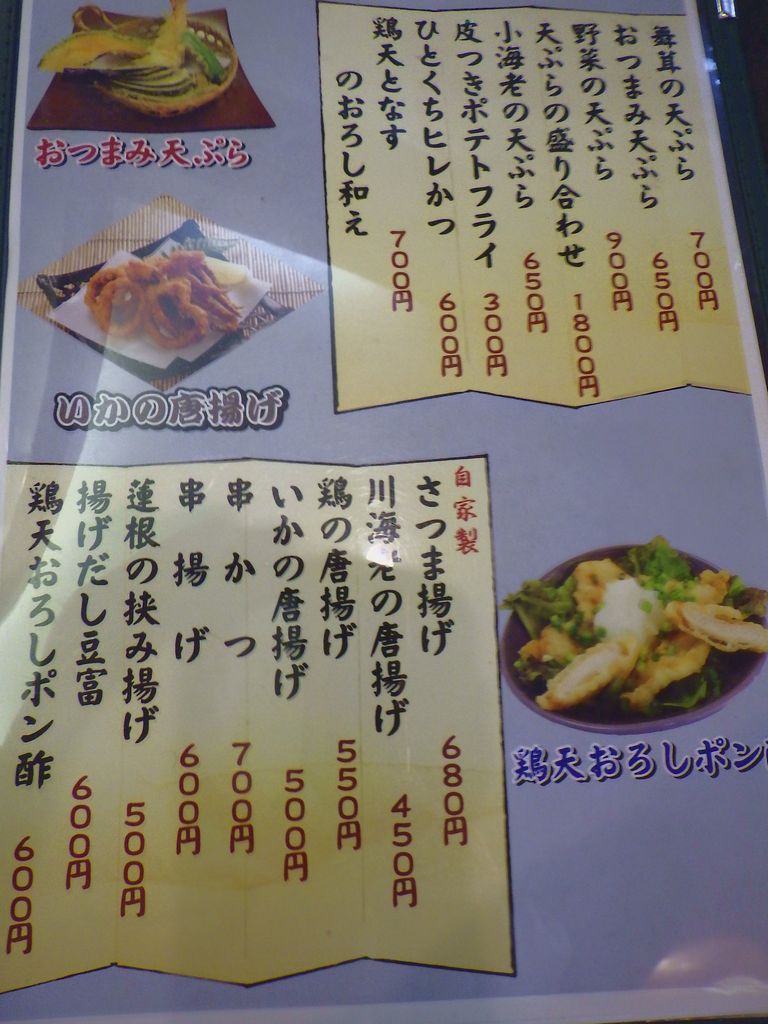 おつまみ天ぷら
いかの唐揚げ
舞茸の天ぷら 700円
おつまみ天ぷら 650円
野菜の天ぷら 900円
天ぷらの盛り合わせ 1800円
小海老の天ぷら 650円
皮つきポテトフライ 300円
ひとくちヒレかつ 600円
鶏天となす
のおろし和え 700円
自家製
さつま揚げ 680円
川海老の唐揚げ 450円
鶏の唐揚げ 550円
いかの唐揚げ 500円
串かつ 700円
串揚げ 600円
蓮根の挟み揚げ 500円
揚げだし豆富 600円
鶏天おろしポン酢 600円
鶏天おろしポン